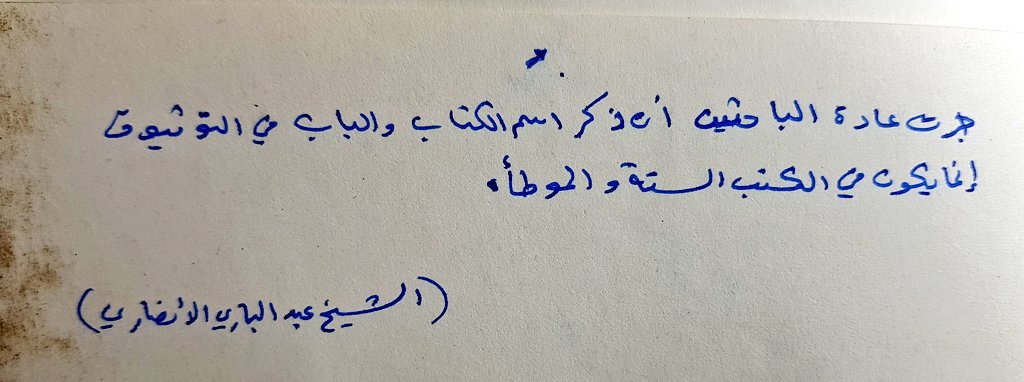 جرت عادة الباحثين أن ذكر اسم الكتاب والباب في التوثيق
إنما يكون في الكتب الستة و الموطأ.
(الشيخ عبد الباري الأنصاري)